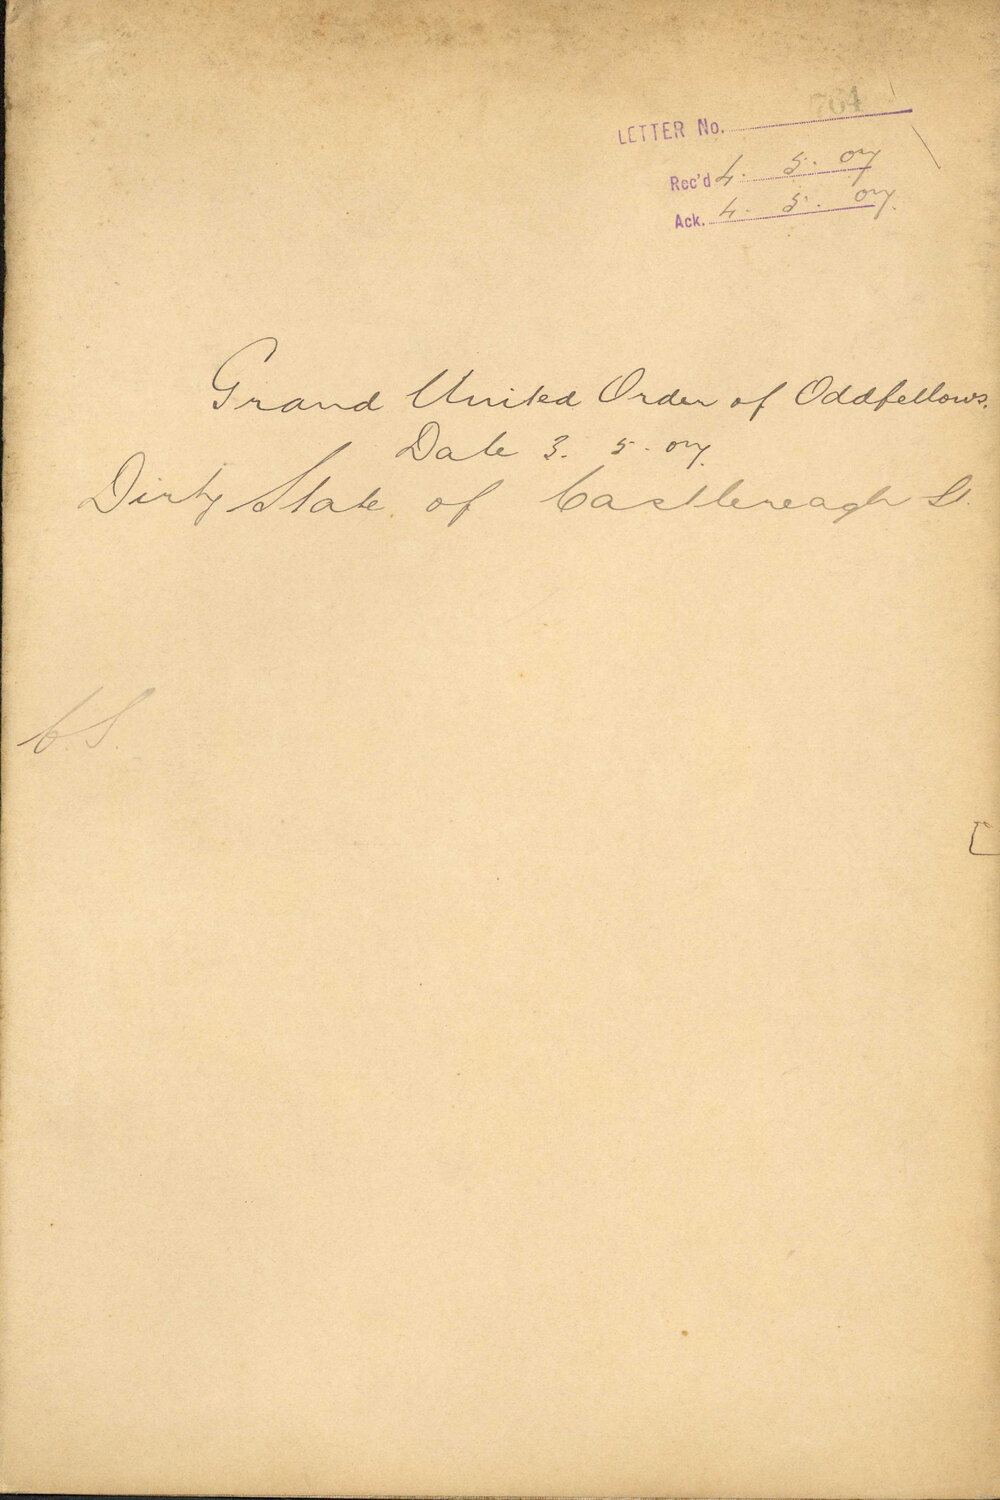 LETTER No. 764
Rec'd 4. 5. 07
Ack. 4. 5. 07.
Grand United Order of Oddfellows.
Date 3. 5. 07.
Dirty State of Castlereagh St.
C.S.